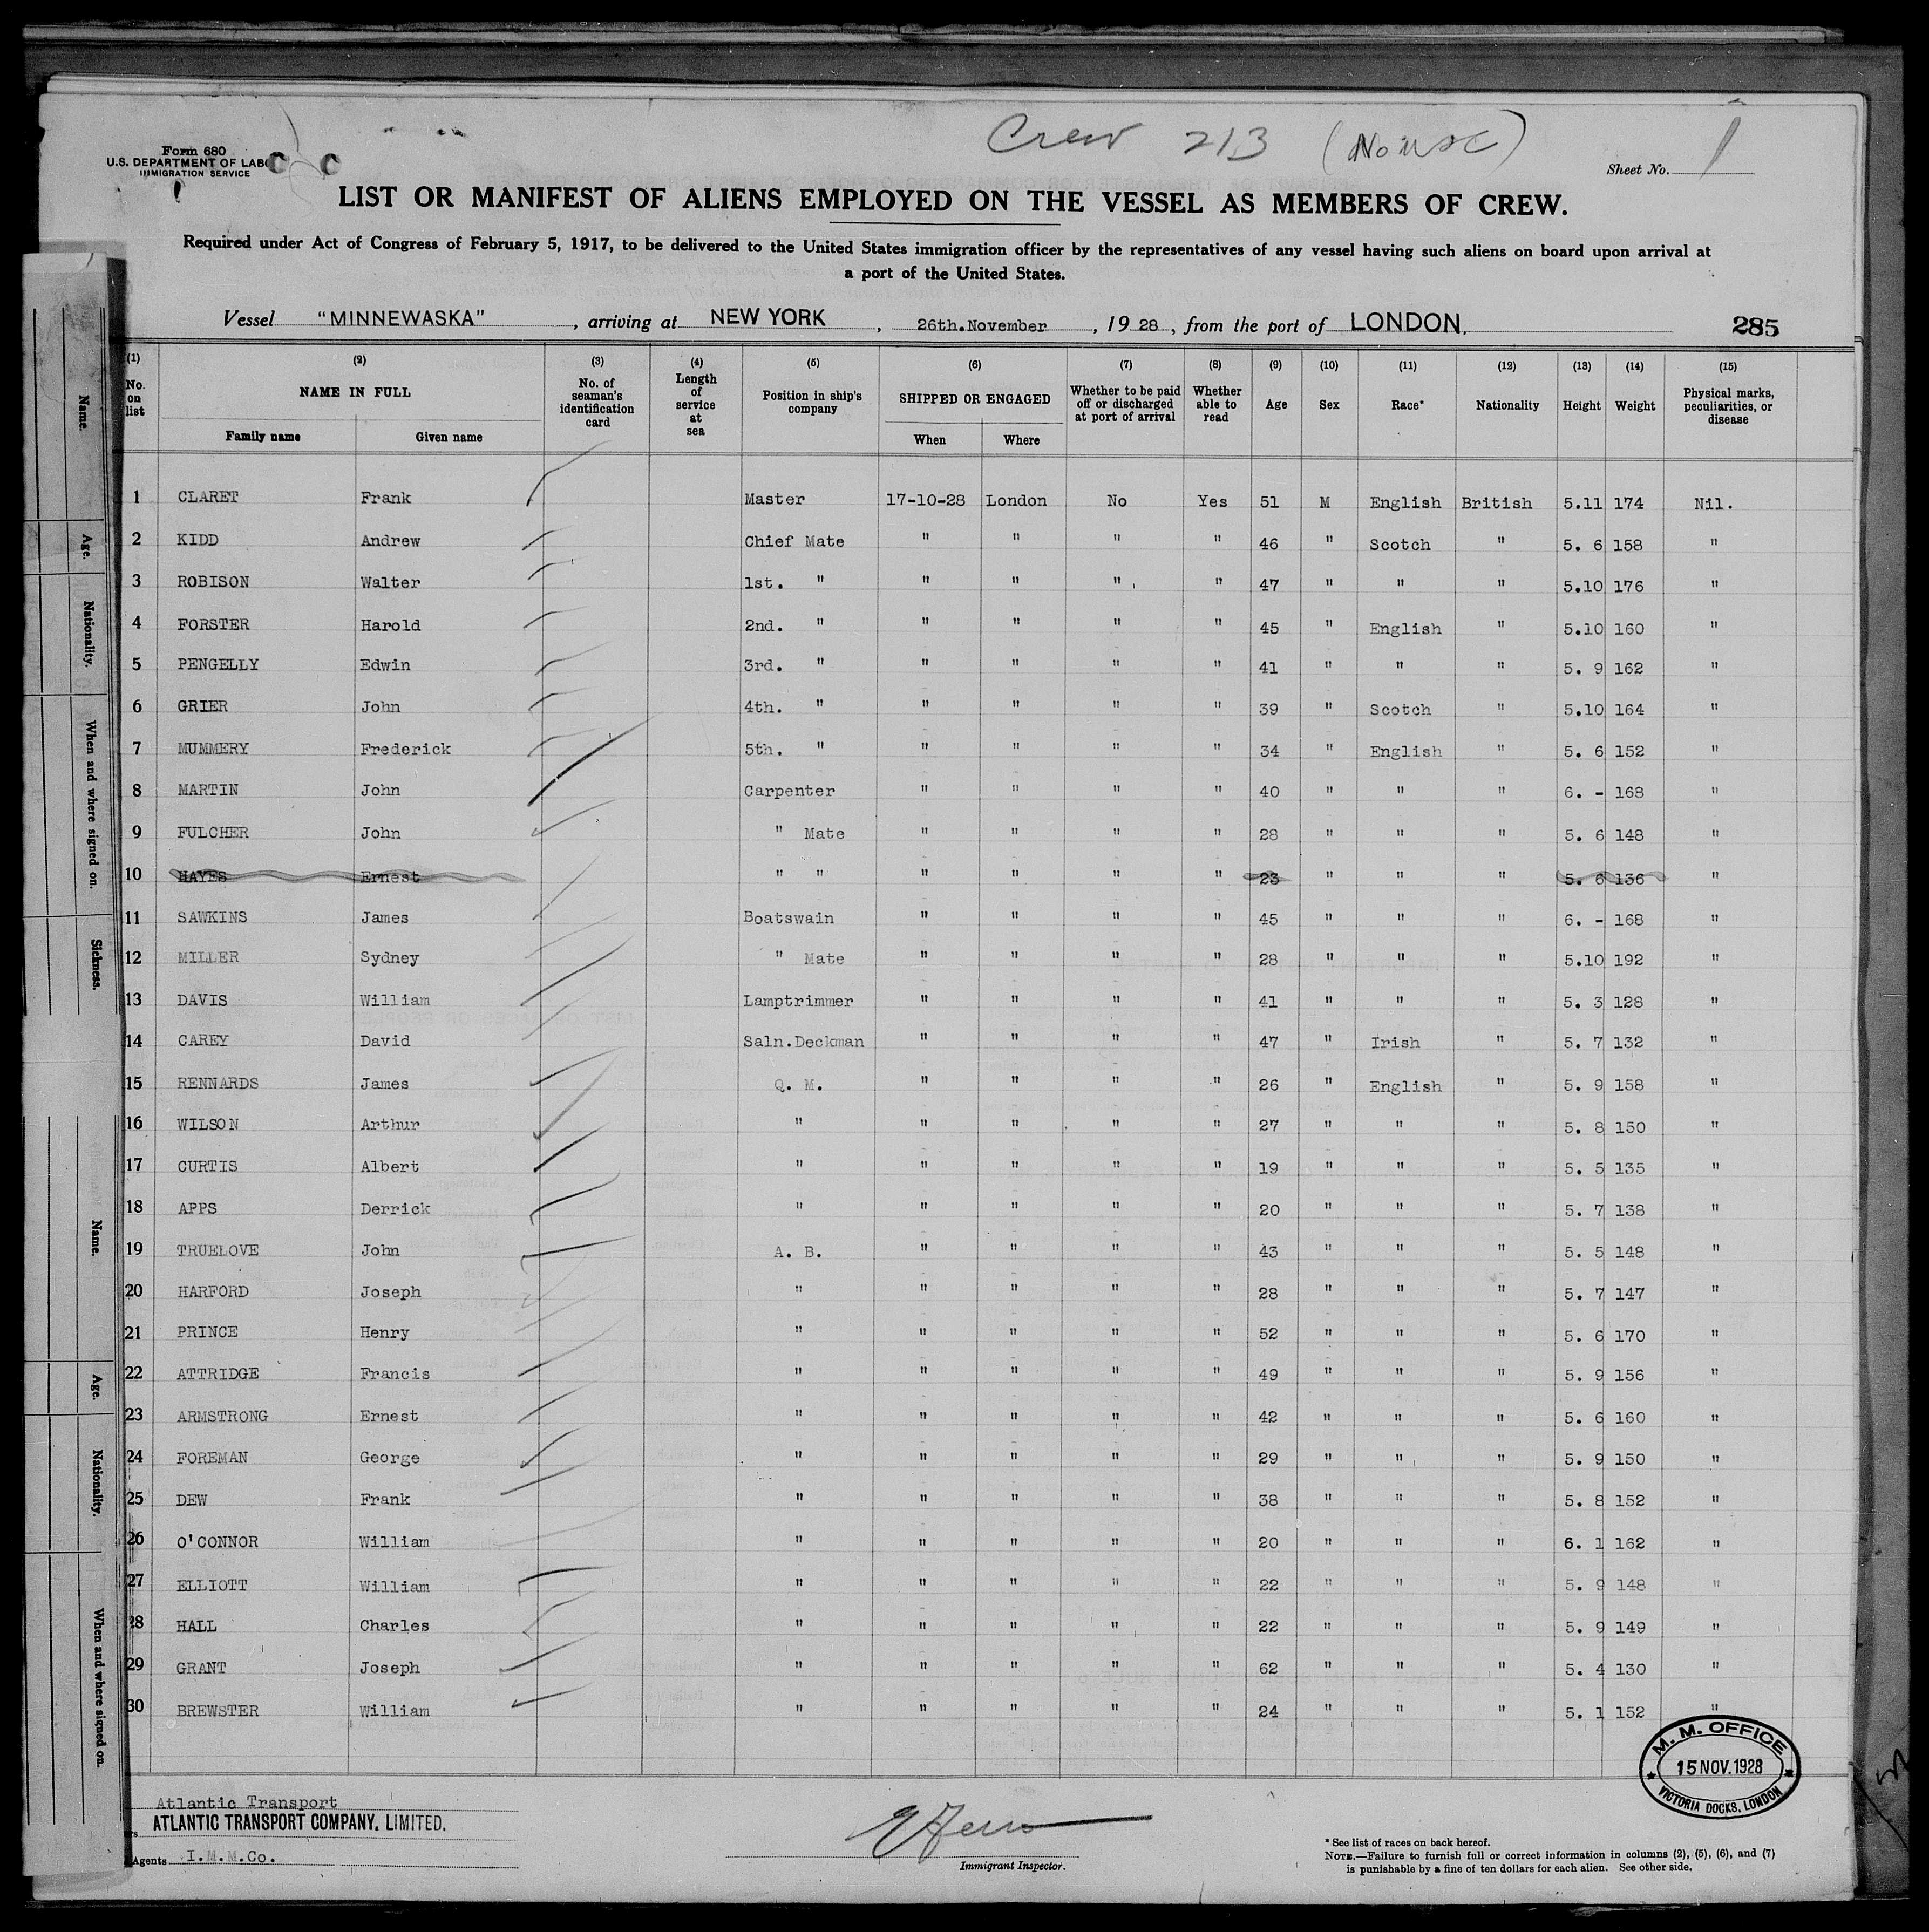 Crew 213
Form 680
U.S. DEPARTMENT OF LABO
IMMIGRATION SERVICE
Sheet No. 1
LIST OR MANIFEST OF ALIENS EMPLOYED ON THE VESSEL AS MEMBERS OF CREW.
Required under Act of Congress of February 5, 1917, to be delivered to the United States immigration officer by the representatives of any vessel having such aliens on board upon arrival at
a port of the United States.
Vessel "MINNEWASKA", arriving at NEW YORK, 26th.November, 1928, from the port of LONDON. 285
(1) (2) (3) (4) (5) (6) (7) (8) (9) (10) (11) (12) (13) (14) (15)
No. on list NAME IN FULL Family name Given name No. of seaman's identification card Length of service at sea Position in ship's company SHIPPED OR ENGAGED When Where Whether to be paid off or discharged at port of arrival Whether able to read Age Sex Race* Nationality Height Weight Physical marks, peculiarities, or disease
1 CLARET Frank Master 17-10-28 London No Yes 51 M English British 5.11 174 Nil.
2 KIDD Andrew Chief Mate " " " " 46 " Scotch " 5. 6 158 "
3 ROBISON Walter 1st. " " " " " 47 " " " 5.10 176 "
4 FORSTER Harold 2nd. " " " " " 45 " English " 5.10 160 "
5 PENGELLY Edwin 3rd. " " " " " 41 " " " 5. 9 162 "
6 GRIER John 4th. " " " " " 39 " Scotch " 5.10 164 "
7 MUMMERY Frederick 5th. " " " " " 34 " English " 5. 6 152 "
8 MARTIN John Carpenter " " " " 40 " " " 6. - 168 "
9 FULCHER John " Mate " " " " 28 " " " 5. 6 148 "
10 HAYES Ernest " " " " " " 23 " " " 5. 6 136 "
11 SAWKINS James Boatswain " " " " 45 " " " 6. - 168 "
12 MILLER Sydney " Mate " " " " 28 " " " 5.10 192 "
13 DAVIS William Lamptrimmer " " " " 41 " " " 5. 3 128 "
14 CAREY David Saln.Deckman " " " " 47 " Irish " 5. 7 132 "
15 RENNARDS James Q. M. " " " " 26 " English " 5. 9 158 "
16 WILSON Arthur " " " " " 27 " " " 5. 8 150 "
17 CURTIS Albert " " " " " 19 " " " 5. 5 135 "
18 APPS Derrick " " " " " 20 " " " 5. 7 138 "
19 TRUELOVE John A. B. " " " " 43 " " " 5. 5 148 "
20 HARFORD Joseph " " " " " 28 " " " 5. 7 147 "
21 PRINCE Henry " " " " " 52 " " " 5. 6 170 "
22 ATTRIDGE Francis " " " " " 49 " " " 5. 9 156 "
23 ARMSTRONG Ernest " " " " " 42 " " " 5. 6 160 "
24 FOREMAN George " " " " " 29 " " " 5. 9 150 "
25 DEW Frank " " " " " 38 " " " 5. 8 152 "
26 O'CONNOR William " " " " " 20 " " " 6. 1 162 "
27 ELLIOTT William " " " " " 22 " " " 5. 9 148 "
28 HALL Charles " " " " " 22 " " " 5. 9 149 "
29 GRANT Joseph " " " " " 62 " " " 5. 4 130 "
30 BREWSTER William " " " " " 24 " " " 5. 1 152 "
M. M. OFFICE
15 NOV. 1928
VICTORIA DOCKS, LONDON
Atlantic Transport
ATLANTIC TRANSPORT COMPANY, LIMITED.
Agents I.M.M.Co.
Immigrant Inspector.
* See list of races on back hereof.
NOTE.—Failure to furnish full or correct information in columns (2), (5), (6), and (7)
is punishable by a fine of ten dollars for each alien. See other side.
Name.
Age.
Nationality.
When and where signed on.
Sickness.
Name.
Age.
Nationality.
When and where signed on.